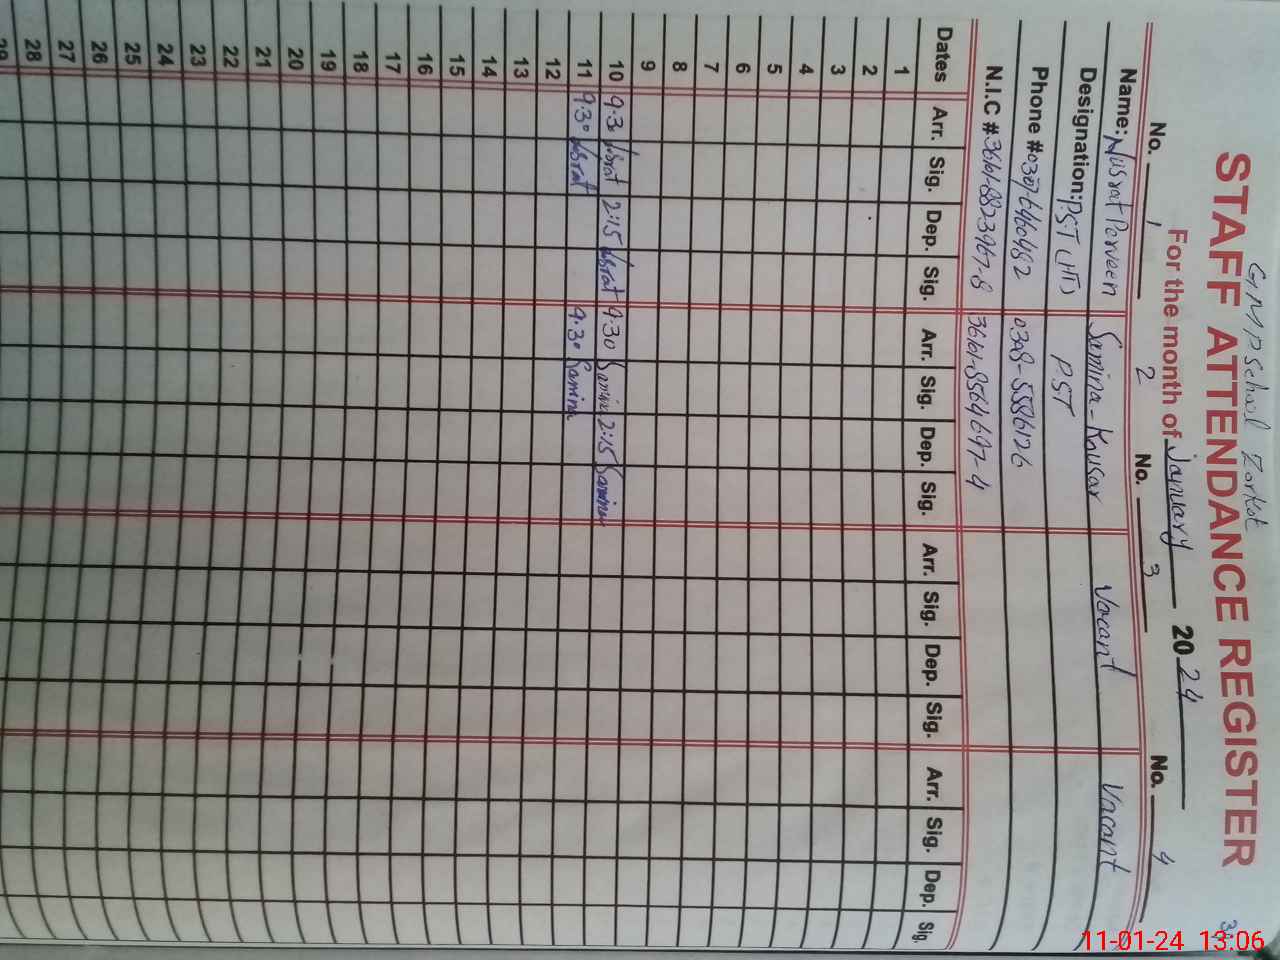 GMPSchool Zorkot
STAFF ATTENDANCE REGISTER
For the month of January 2024
No. 1 2 No. 3 No. 4
Name: Nusrat Parveen Samina-Kausar Vacant Vacant
Designation: P.S.T (HT) P.ST
Phone # 0307-6960482 0308-5586126
N.I.C # 36101-8823967-8 36101-8564697-4
Dates Arr. Sig. Dep. Sig. Arr. Sig. Dep. Sig. Arr. Sig. Dep. Sig. Arr. Sig. Dep. Sig.
1
2
3
4
5
6
7
8
9
10 9.30 Nusrat 2:15 Nusrat 9.30 Samina 2:15 Samina
11 9.30 Nusrat 9.30 Samina
12
13
14
15
16
17
18
19
20
21
22
23
24
25
26
27
28
29
11-01-24 13:06